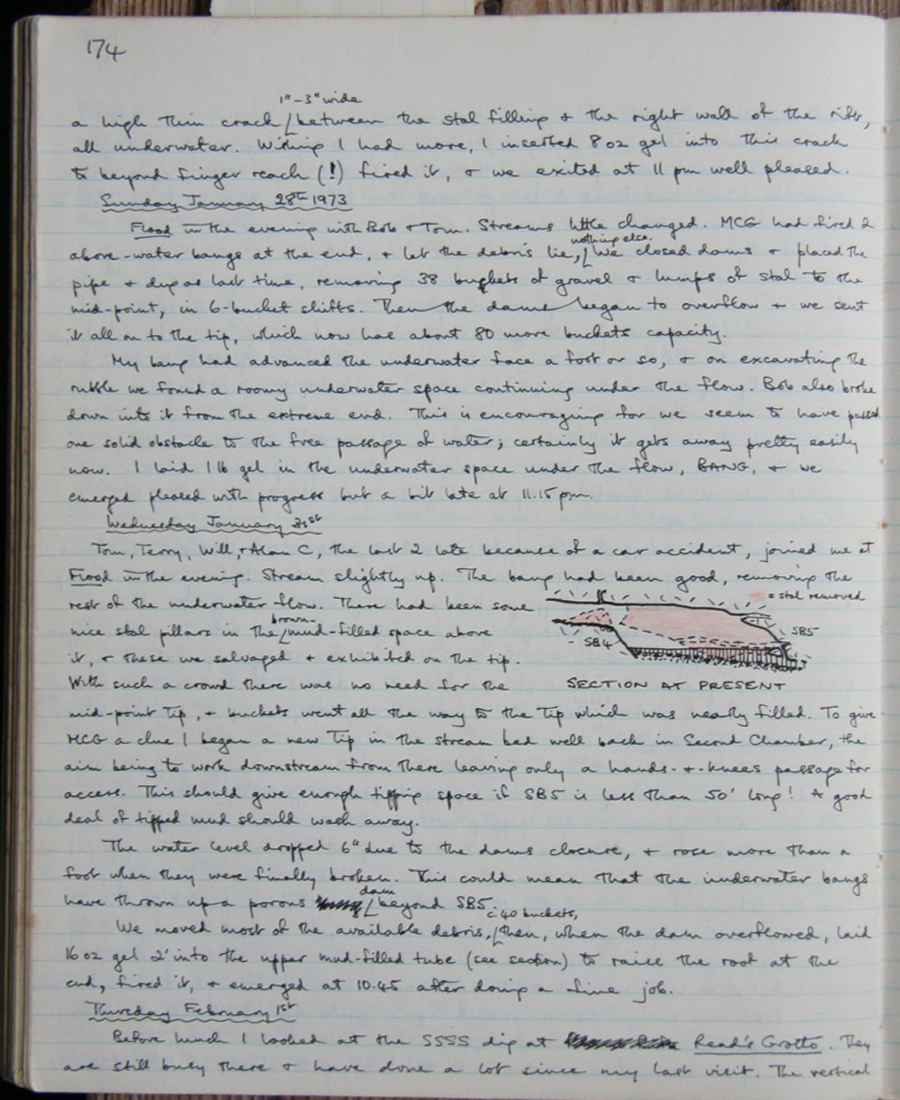 174
1"-3" wide
a high thin crack between the stal filling & the right wall of the rift,
all underwater. Wishing I had more, I inserted 8 oz gel into this crack
to beyond finger reach (!) fired it, & we exited at 11 pm well pleased.
Sunday January 28th 1973
Flood in the evening with Bob & Tom. Streams little changed. MCG had fired 2
nothing else.
above-water bangs at the end, & let the debris lie, We closed dams & placed the
pipe & dyp as last time, removing 38 buckets of gravel & lumps of stal to the
mid-point, in 6-bucket shifts. Then the dams began to overflow & we sent
it all on to the tip, which now has about 80 more buckets capacity.
My bang had advanced the underwater face a foot or so, & on excavating the
rubble we found a roomy underwater space continuing under the flow. Bob also broke
down into it from the extreme end. This is encouraging for we seem to have passed
one solid obstacle to the free passage of water; certainly it gets away pretty easily
now. I laid 1 lb gel in the underwater space under the flow, BANG, & we
emerged pleased with progress but a bit late at 11.15 pm.
Wednesday January 31st
Tom, Terry, Will, & Alan C, the last 2 late because of a car accident, joined me at
Flood in the evening. Stream slightly up. The bang had been good, removing the
rest of the underwater flow. There had been some
brown-
nice stal pillars in the mud-filled space above
it, & these we salvaged & exhibited on the tip.
With such a crowd there was no need for the
= stal removed
SB4
SB5
SECTION AT PRESENT
mid-point tip, & buckets went all the way to the tip which was nearly filled. To give
MCG a clue I began a new tip in the stream bed well back in Second Chamber, the
aim being to work downstream from there leaving only a hands-&-knees passage for
access. This should give enough tipping space if SB5 is less than 50' long! A good
deal of tipped mud should wash away.
The water level dropped 6" due to the dams closure, & rose more than a
foot when they were finally broken. This could mean that the underwater bangs
dam
have thrown up a porous beyond SB5.
c. 40 buckets,
We moved most of the available debris, then, when the dam overflowed, laid
16 oz gel 2' into the upper mud-filled tube (see section) to raise the roof at the
end, fired it, & emerged at 10.45 after doing a fine job.
Thursday February 1st
Before lunch I looked at the SSSS dig at Read's Grotto. They
are still busy there & have done a lot since my last visit. The vertical